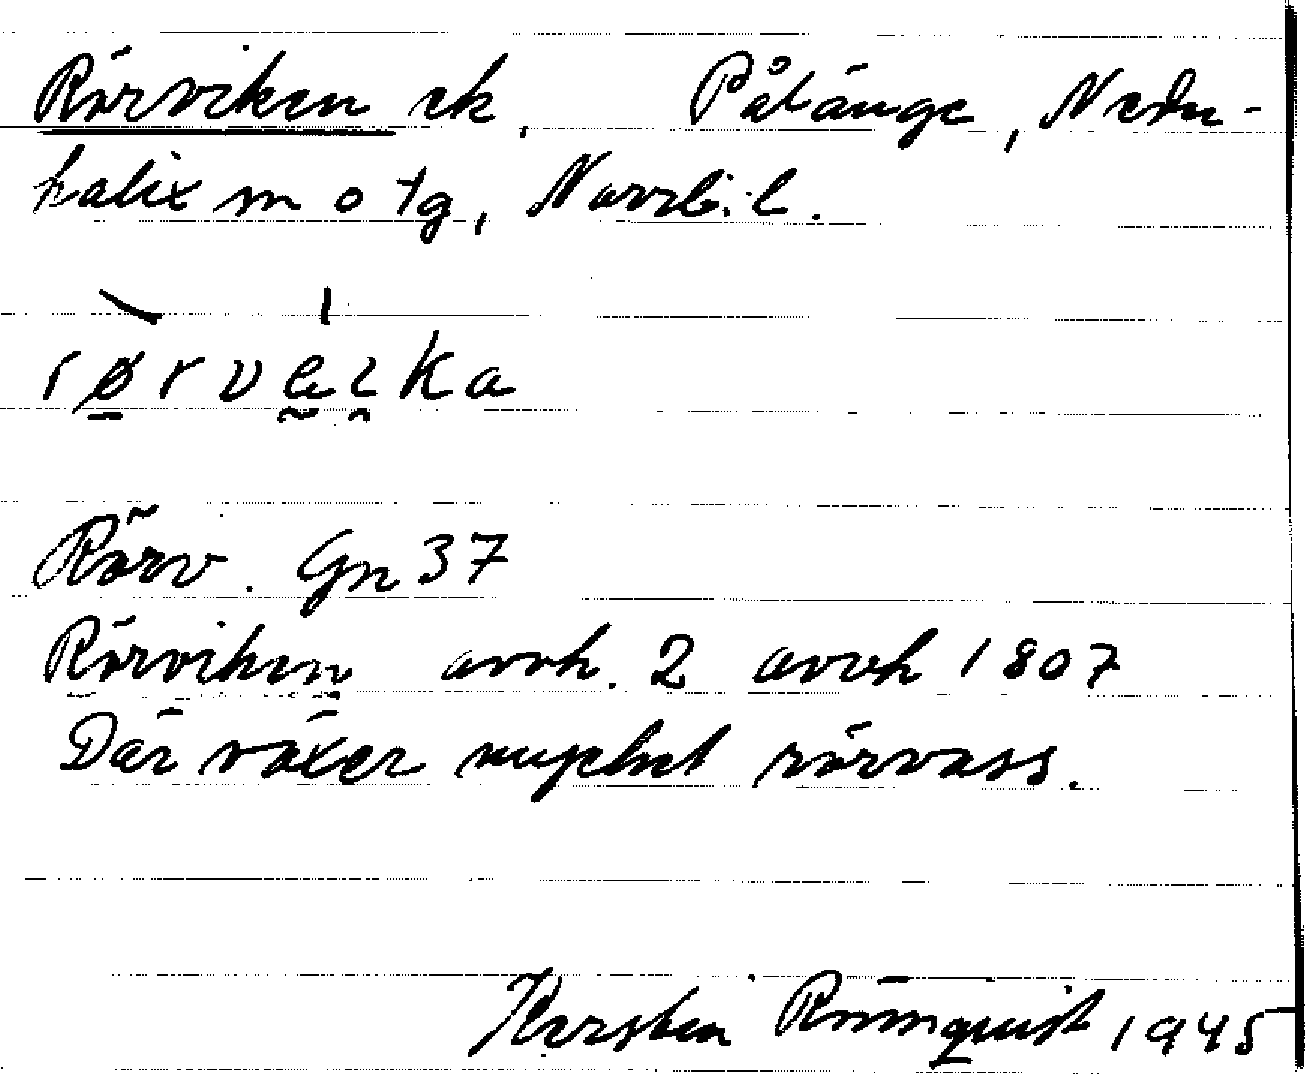 Rörviken ek, Pålänge, Neder-
kalix sn o tg, Norrb. l.
rørvæika
Rörv. Gn 37
Rörviken avvh. 2 avvh 1807
Där växer mycket rörvass.
Kersten Rönnquist 1945